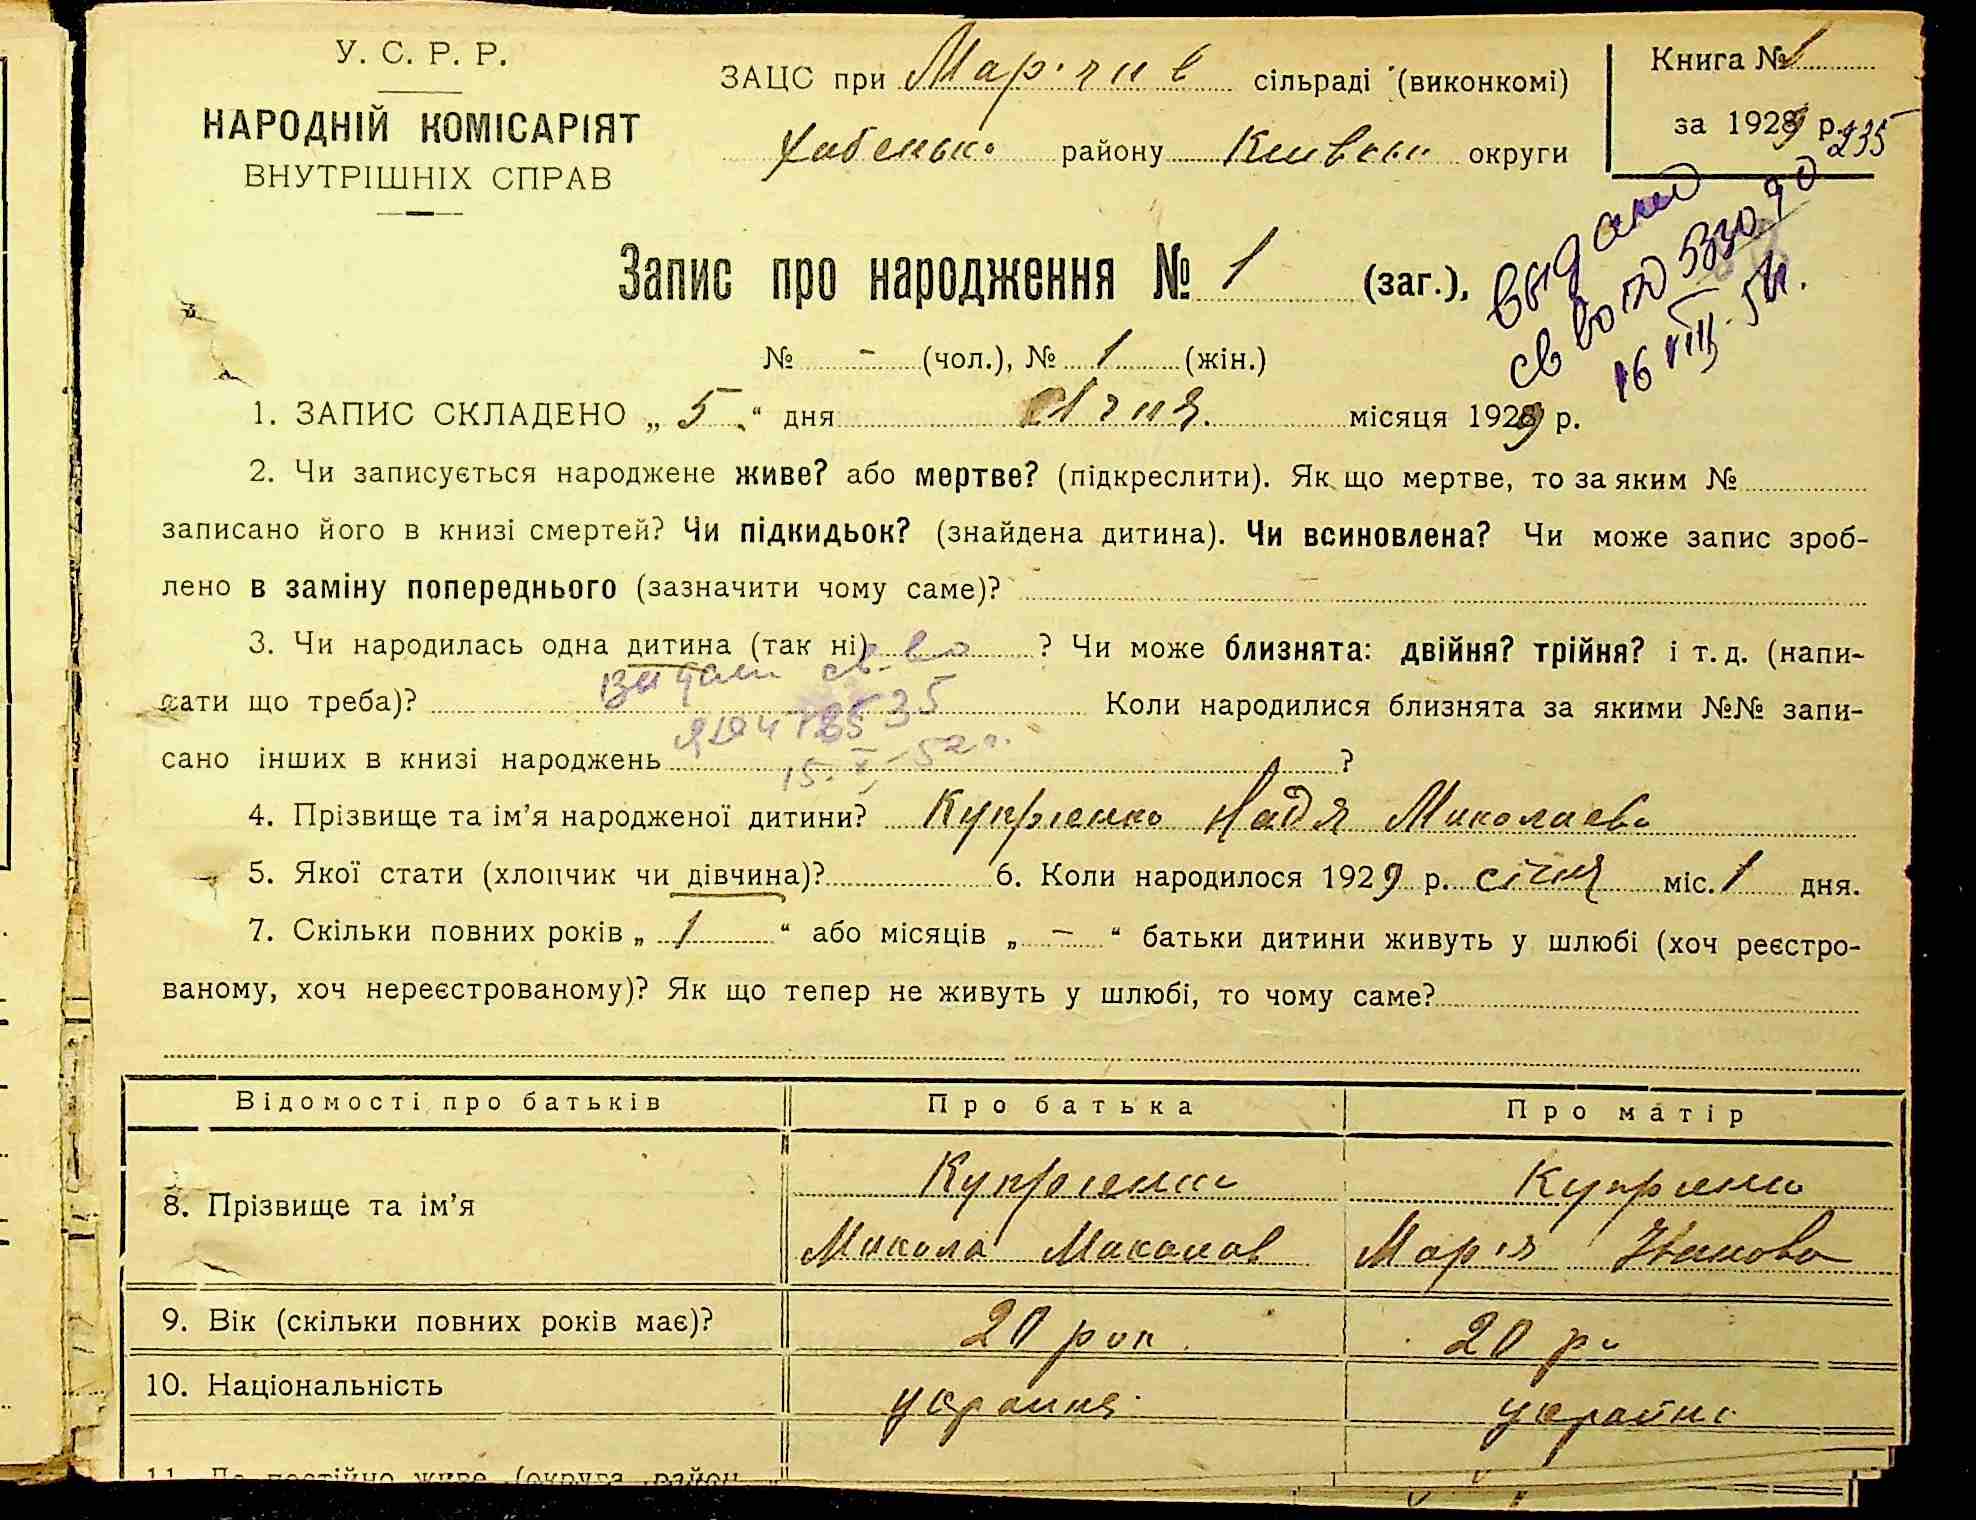 У. С. Р. Р.
НАРОДНІЙ КОМІСАРІЯТ
ВНУТРІШНІХ СПРАВ
ЗАЦС при сільраді (виконкомі)
району округи
Книга № 1
за 1929 р. 235
Запис про народження № 1 (заг.),
№ - (чол.), № 1 (жін.)
16 VIII
1. ЗАПИС СКЛАДЕНО „ 5 “ дня січня місяця 1929 р.
2. Чи записується народжене живе? або мертве? (підкреслити). Як що мертве, то за яким №
записано його в книзі смертей? Чи підкидьок? (знайдена дитина). Чи всиновлена? Чи може запис зроб-
лено в заміну попереднього (зазначити чому саме)?
3. Чи народилась одна дитина (так ні) ? Чи може близнята: двійня? трійня? і т. д. (напи-
сати що треба)? Коли народилися близнята за якими №№ запи-
сано інших в книзі народжень ?
4. Прізвище та ім'я народженої дитини? Купрієнко Надя Миколаєв
5. Якої статі (хлопчик чи дівчина)? 6. Коли народилося 1929 р. січня міс. 1 дня.
7. Скільки повних років „ 1 “ або місяців „ - “ батьки дитини живуть у шлюбі (хоч реєстро-
ваному, хоч нереєстрованому)? Як що тепер не живуть у шлюбі, то чому саме?
Відомості про батьків Про батька Про матір
8. Прізвище та ім'я Купрієнко Купрієнко
Микола Марія Іванова
9. Вік (скільки повних років має)? 20 рок 20 ро
10. Національність
11. Де постійно живе (округа, район,